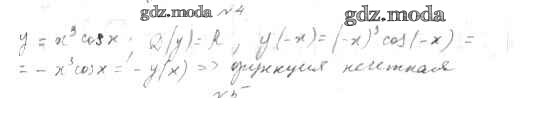 gdz.moda №4 gdz.moda
y = x³cosx; D(y)=R, y(-x)=(-x)³cos(-x) =
= -x³cosx = -y(x) => функция нечетная
№5